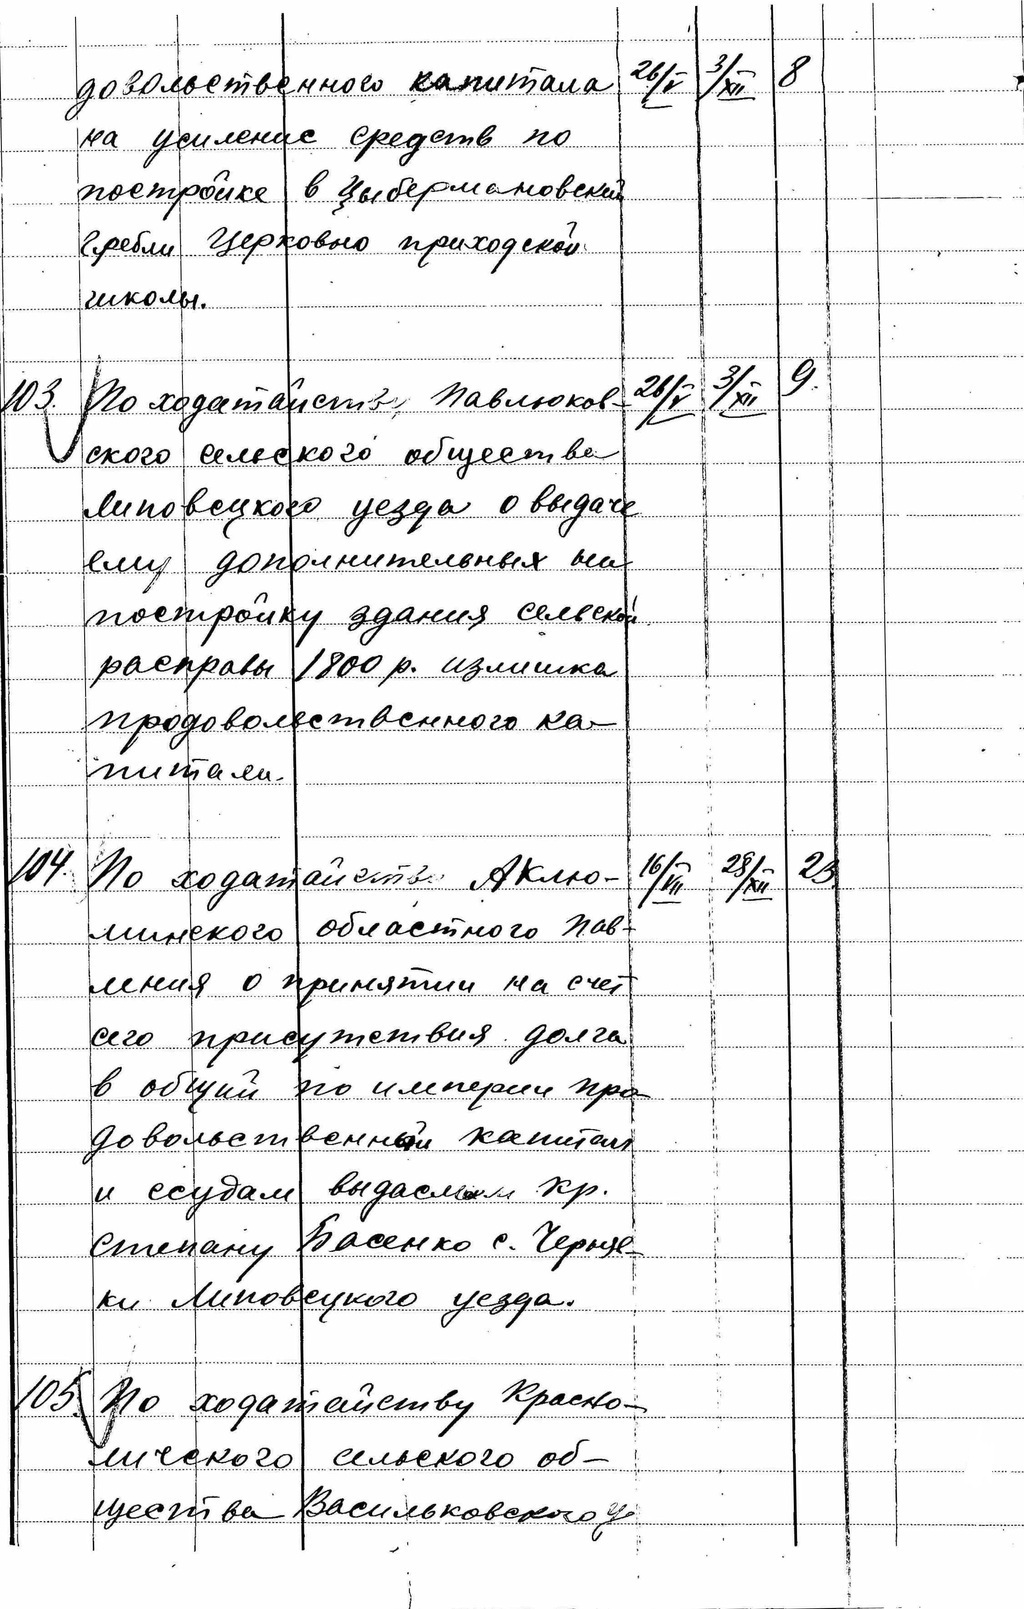 довольственного капитала 26/V 3/XII 8
на усиление средств по
постройке в Цыбермановской
Гребли Церковно приходской
школы.
103. По ходатайству Павлюков- 26/V 3/XII 9.
ского сельского общества
Липовецкого уезда о выдаче
ему дополнительных на
постройку здания сельской
расправы 1800 р. излишка
продовольственного ка-
питала.
104. По ходатайств Аклю- 16/VII 28/XII 23
минского областного Прав-
ления о принятии на счет
сего присутствия долга
в общий по империи про
довольственный капитал
и ссудам выдаемым кр.
Степану Басенко с. Черняв-
ки Липовецкого уезда.
105. По ходатайству Красно-
лического сельского об-
щества Васильковского у